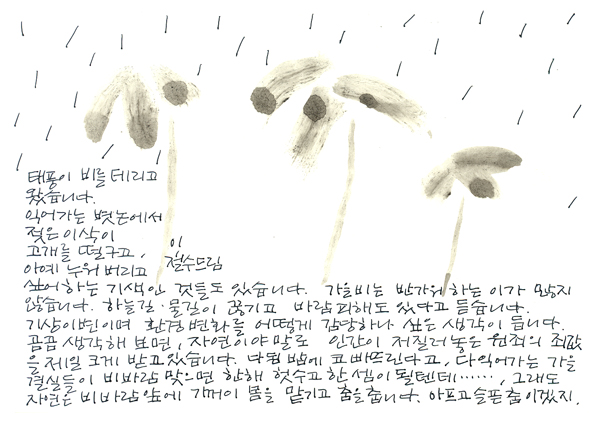 태풍이 비를 데리고
왔습니다.
익어가는 볏논에서
젖은 이삭이
고개를 떨구고,
아예 누워 버리고
이
철수드림
싶어하는 기색인 것들도 있습니다. 가을비는 반가워 하는 이가 많지
않습니다. 하늘길·물길이 끊기고 바람피해도 있다고 듣습니다.
기상이변이며 환경변화를 어떻게 감당하나 싶은 생각이 듭니다.
곰곰 생각해 보면, 자연이야 말로 인간이 저질러 놓은 원죄의 죄값
을 제일 크게 받고 있습니다. 다 된 밥에 코 빠뜨린다고, 다 익어가는 가을
결실들이 비바람 맞으면 한해 헛수고 한 셈이 될텐데……, 그래도
자연은 비바람 앞에 기꺼이 몸을 맡기고 춤을 춥니다. 아프고 슬픈 춤이겠지.